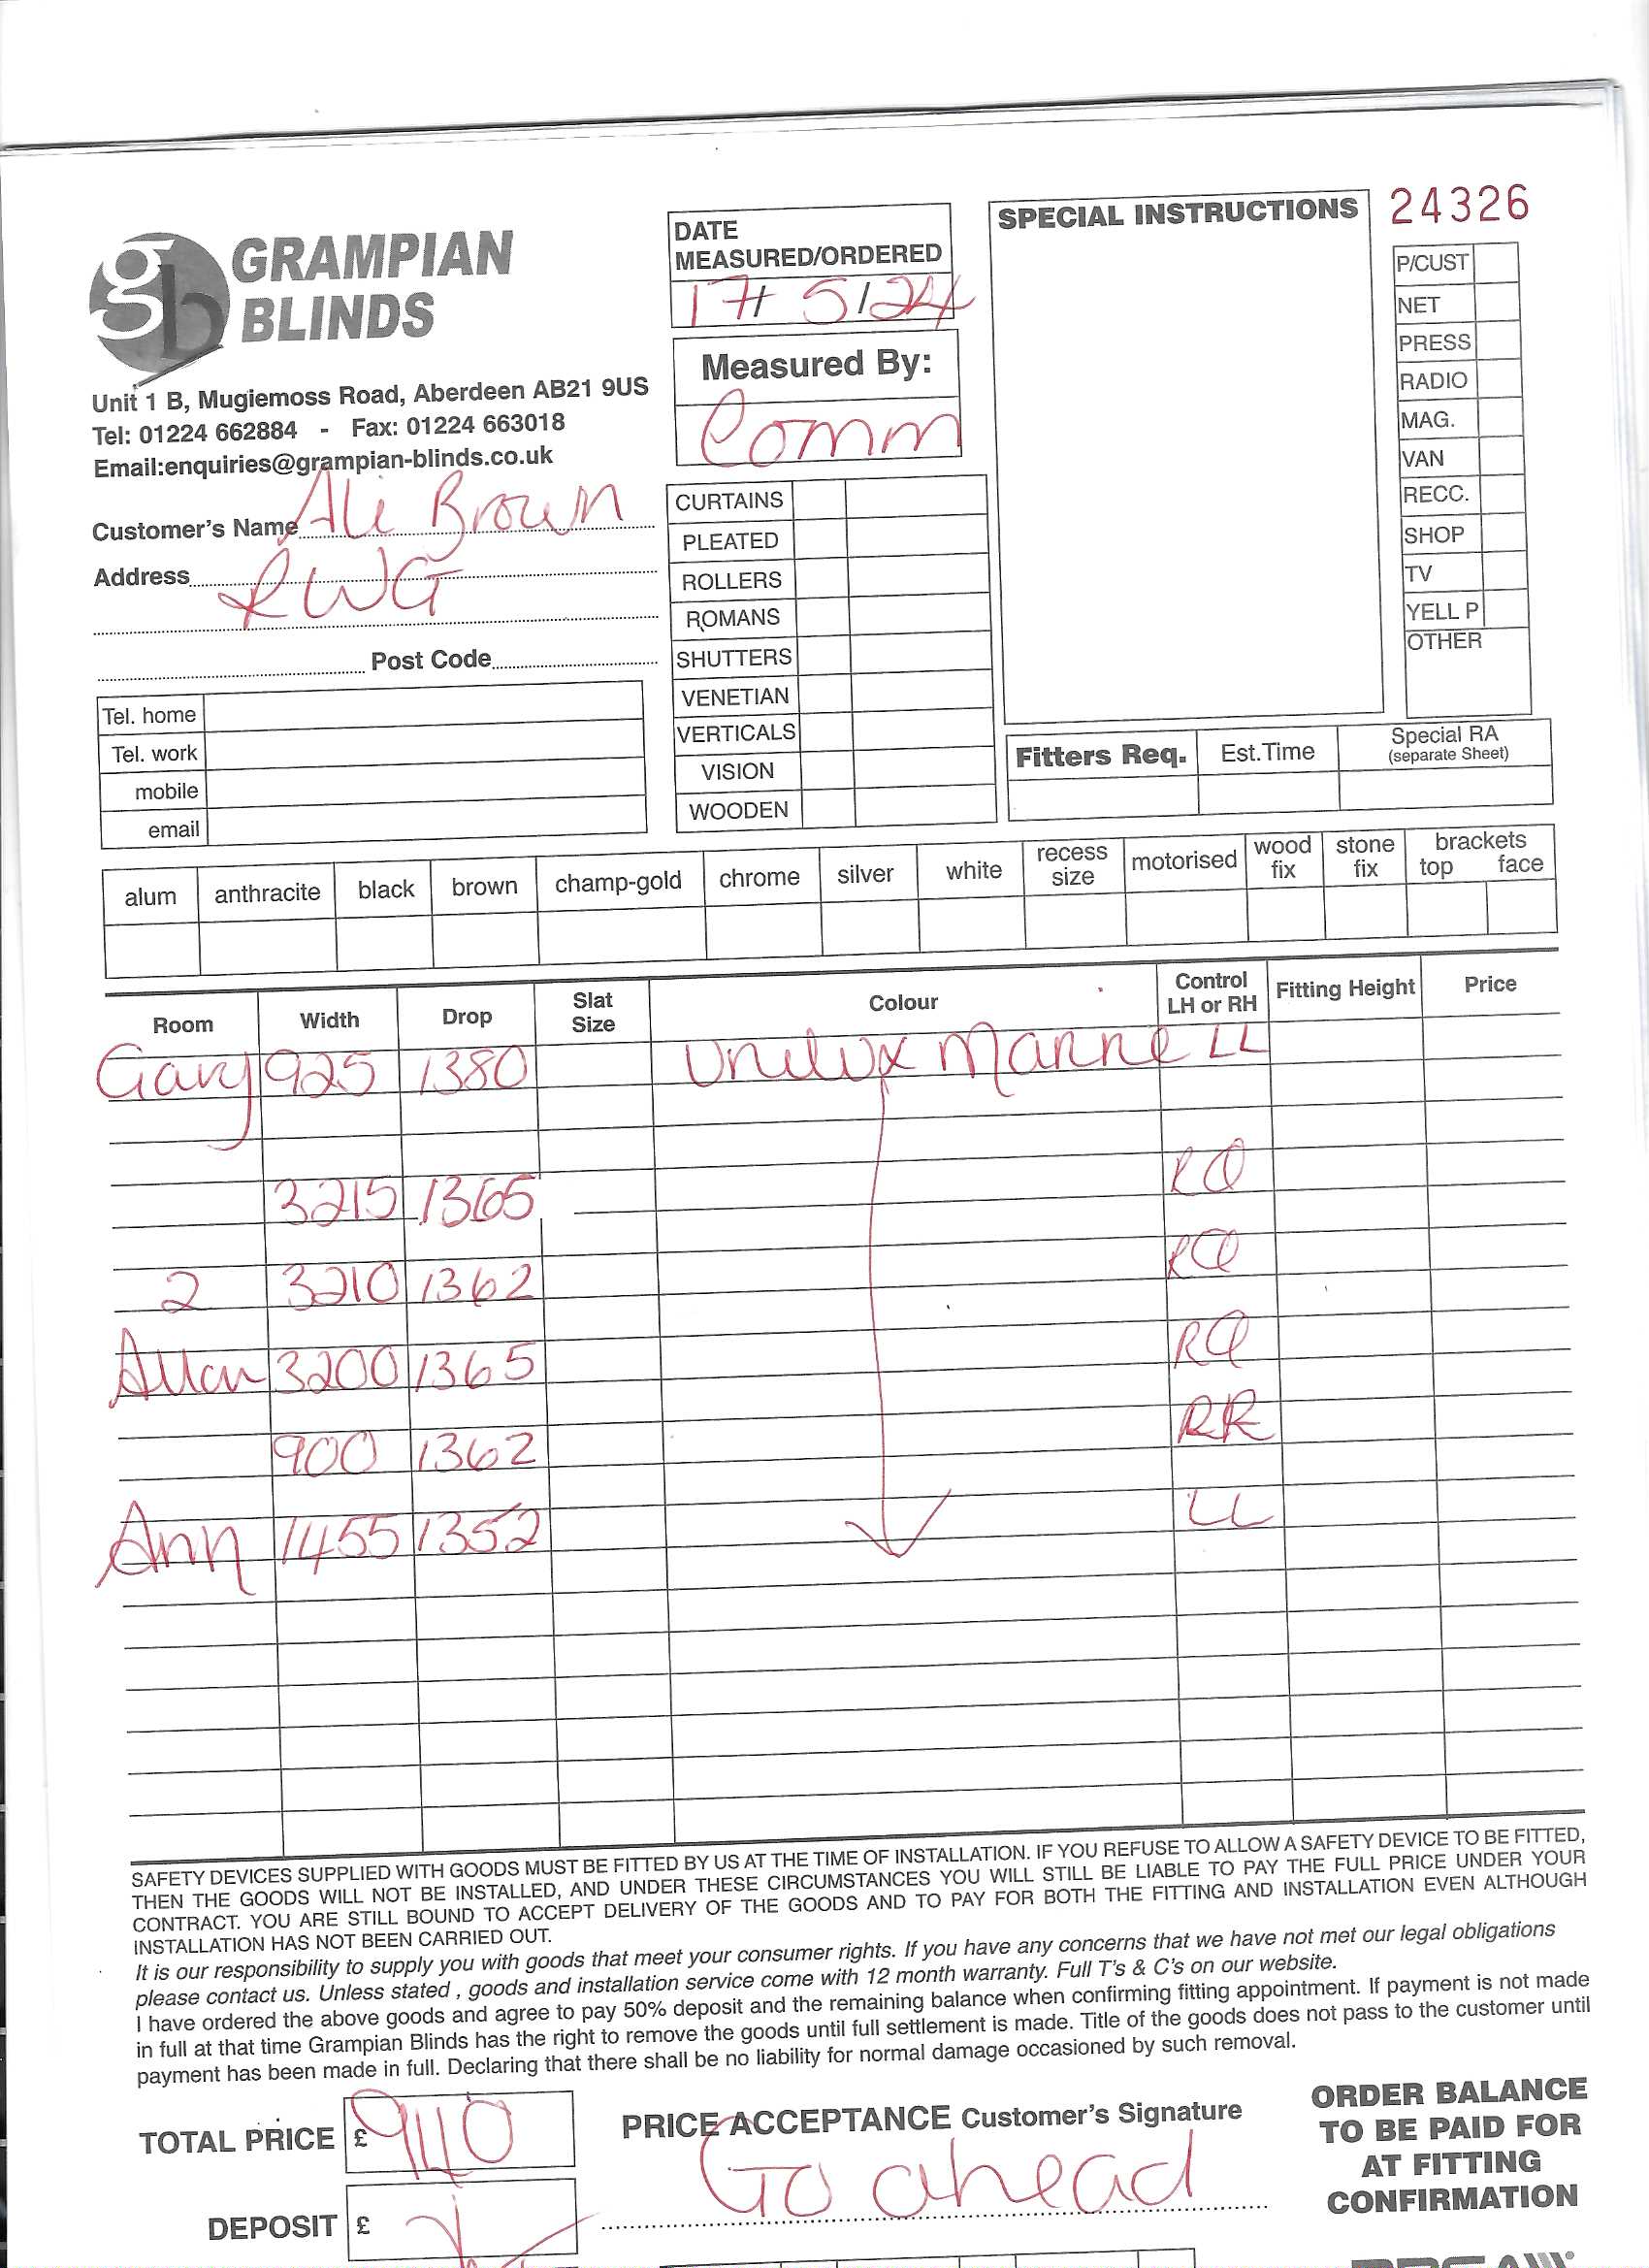 24326
GRAMPIAN
BLINDS
gb
Unit 1 B, Mugiemoss Road, Aberdeen AB21 9US
Tel: 01224 662884 - Fax: 01224 663018
Email:enquiries@grampian-blinds.co.uk
Customer's Name Ali Brown
Address RWG
Post Code
Tel. home
Tel. work
mobile
email
DATE
MEASURED/ORDERED
17/5/24
Measured By:
Comm
CURTAINS
PLEATED
ROLLERS
ROMANS
SHUTTERS
VENETIAN
VERTICALS
VISION
WOODEN
SPECIAL INSTRUCTIONS
P/CUST
NET
PRESS
RADIO
MAG.
VAN
RECC.
SHOP
TV
YELL P
OTHER
Fitters Req. Est.Time Special RA
(separate Sheet)
alum anthracite black brown champ-gold chrome silver white recess size motorised wood fix stone fix brackets top face
Room Width Drop Slat Size Colour Control LH or RH Fitting Height Price
Gary 925 1380 Unilux Marine LL
3215 1365
2 3210 1362
Allan 3200 1365
900 1362 RR
Ann 1455 1352 LL
SAFETY DEVICES SUPPLIED WITH GOODS MUST BE FITTED BY US AT THE TIME OF INSTALLATION. IF YOU REFUSE TO ALLOW A SAFETY DEVICE TO BE FITTED,
THEN THE GOODS WILL NOT BE INSTALLED, AND UNDER THESE CIRCUMSTANCES YOU WILL STILL BE LIABLE TO PAY THE FULL PRICE UNDER YOUR
CONTRACT. YOU ARE STILL BOUND TO ACCEPT DELIVERY OF THE GOODS AND TO PAY FOR BOTH THE FITTING AND INSTALLATION EVEN ALTHOUGH
INSTALLATION HAS NOT BEEN CARRIED OUT.
It is our responsibility to supply you with goods that meet your consumer rights. If you have any concerns that we have not met our legal obligations
please contact us. Unless stated , goods and installation service come with 12 month warranty. Full T's & C's on our website.
I have ordered the above goods and agree to pay 50% deposit and the remaining balance when confirming fitting appointment. If payment is not made
in full at that time Grampian Blinds has the right to remove the goods until full settlement is made. Title of the goods does not pass to the customer until
payment has been made in full. Declaring that there shall be no liability for normal damage occasioned by such removal.
TOTAL PRICE £ 940
PRICE ACCEPTANCE Customer's Signature
Go ahead
DEPOSIT £
ORDER BALANCE
TO BE PAID FOR
AT FITTING
CONFIRMATION